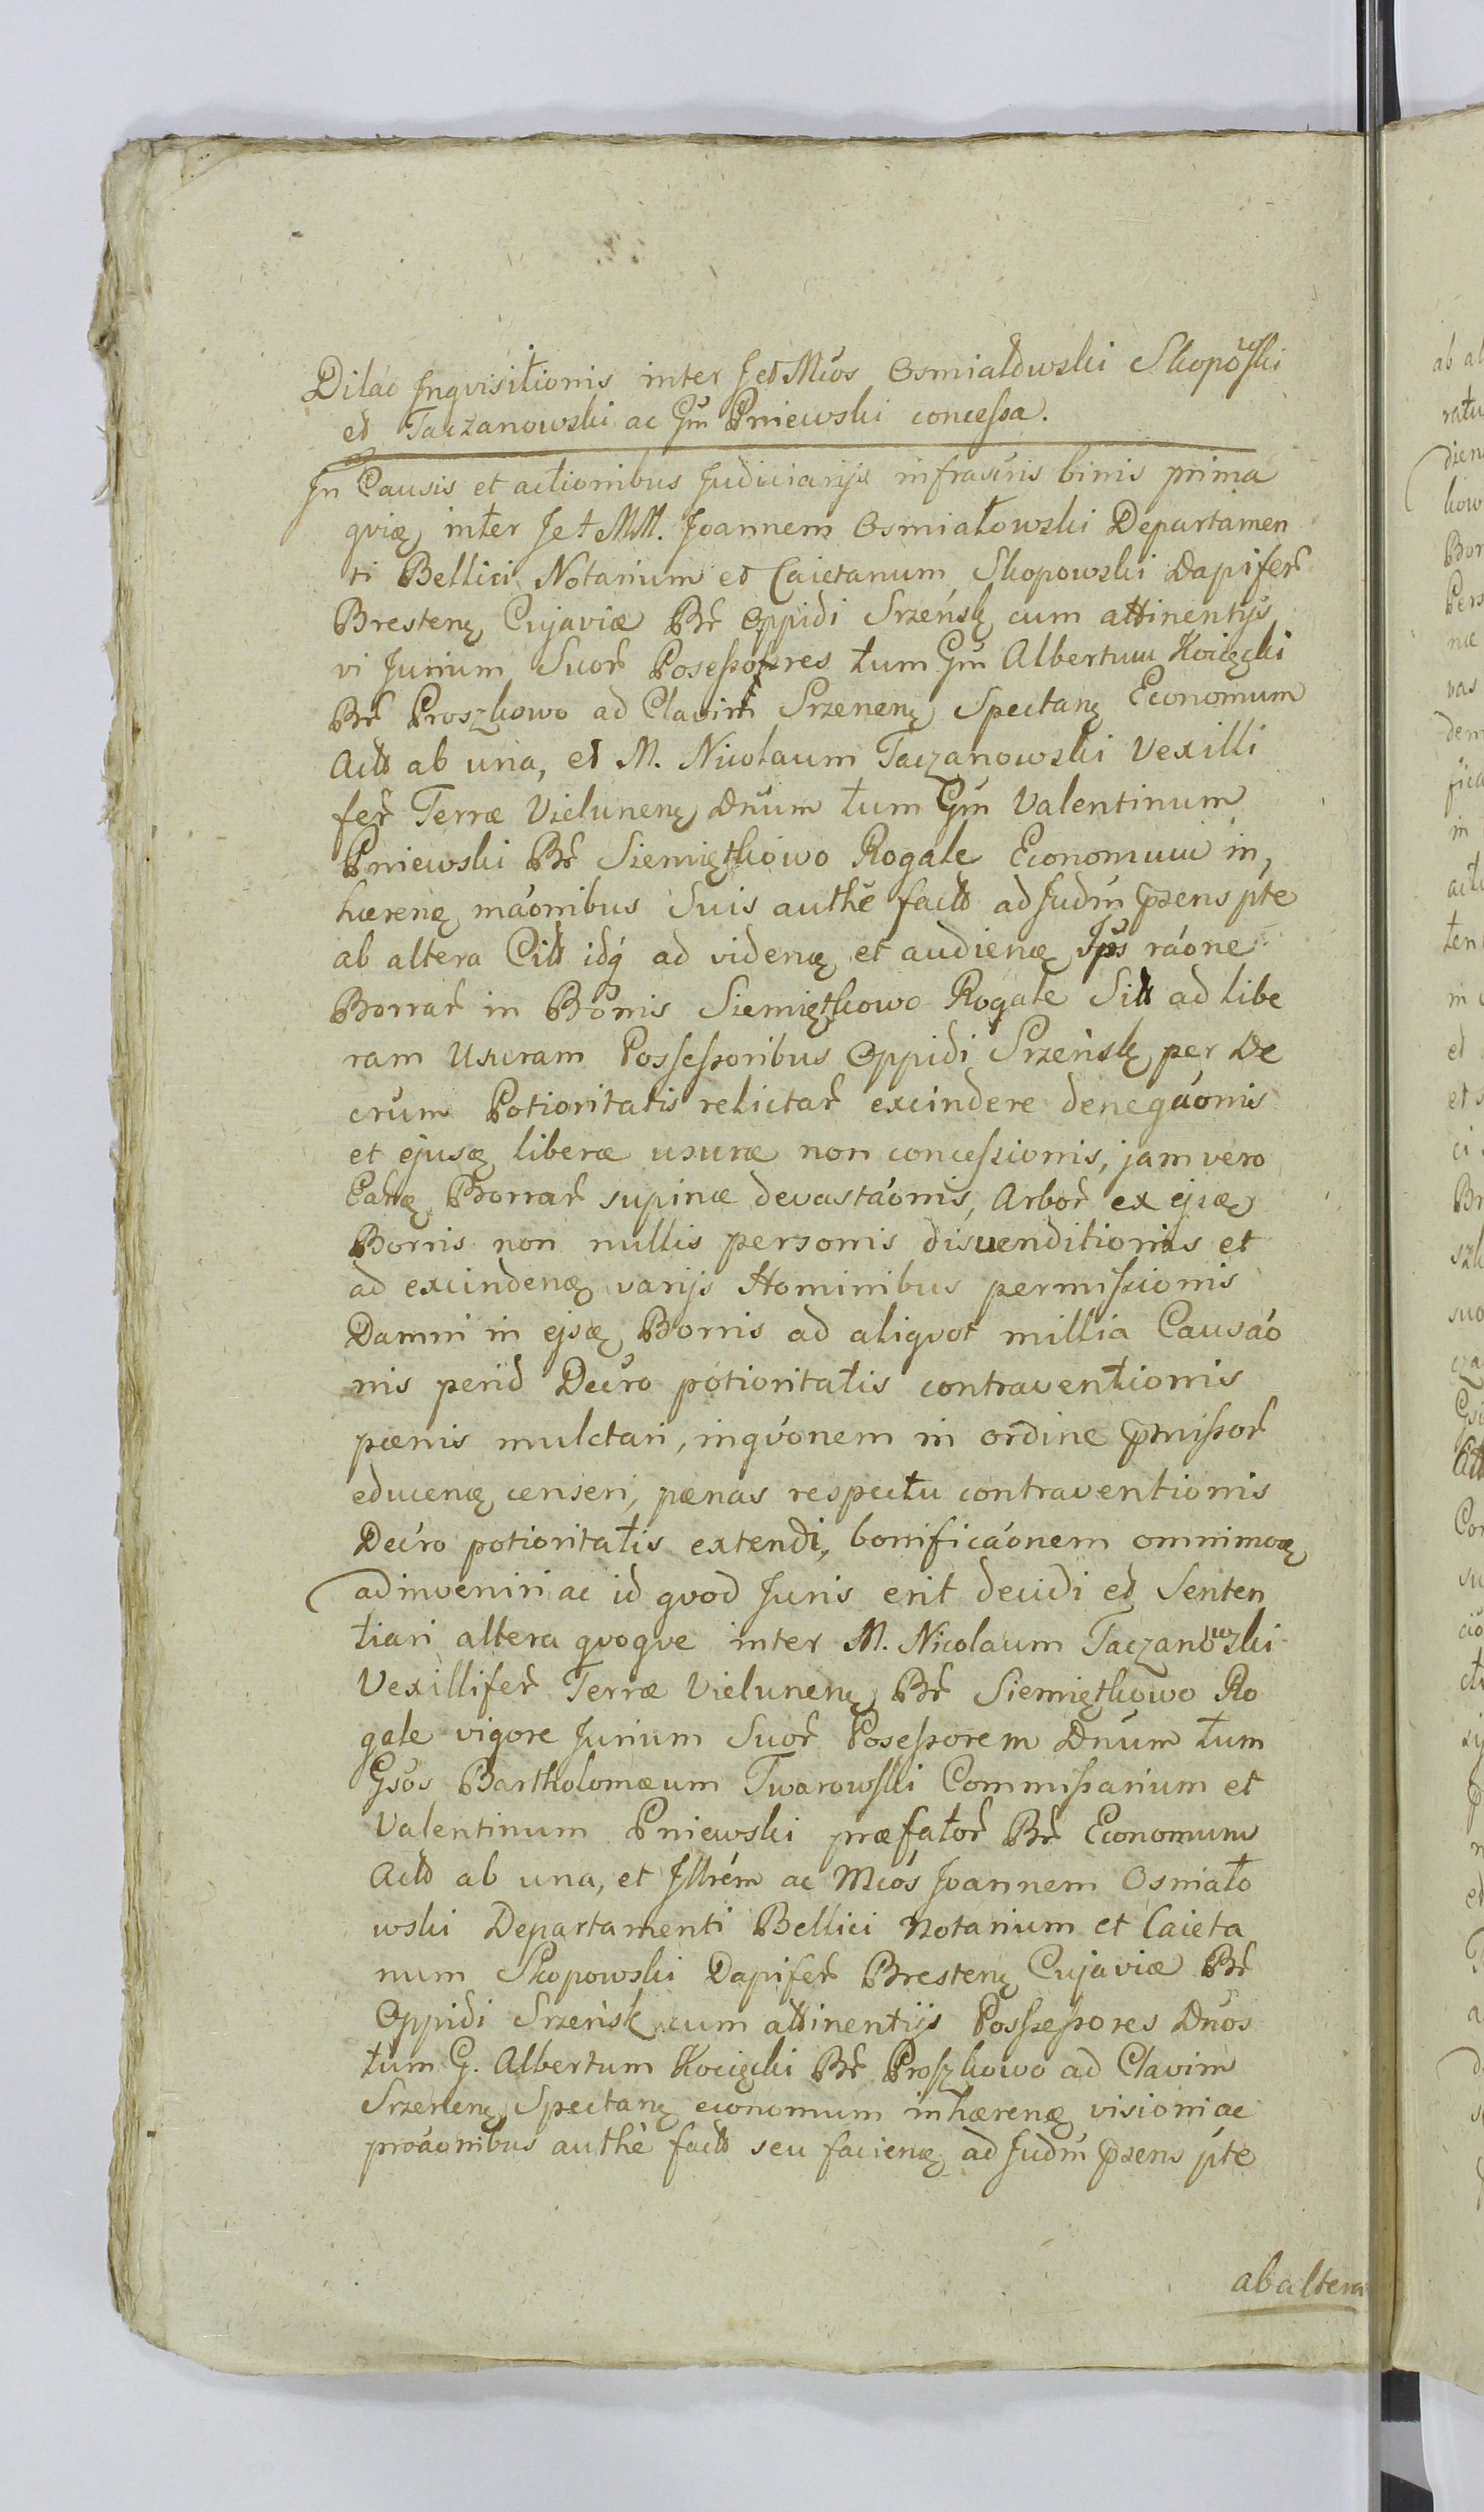 Dilao Inqvisitionis inter J et Mcos Osmiałowski Skopowski
et Taczanowski ac Gm Pniewski concessa.
In Causis et actionibus Judiciarijs infrascris binis prima
qviæ inter J et MM. Joannem Osmiałowski Departamen
ti Bellici Notarium et Caietanum Skopowski Dapifer
Bresten Cujaviæ Br Oppidi Srzeńsk cum attinentijs
vi Jurium Suor Posessores tum Gm Albertum Kocięcki
Br Proszkowo ad Clavim Srzenen Spectan Economum
Actt ab una, et M. Nicolaum Taczanowski Vexilli
fer Terræ Vielunen Dnum tum Gm Valentinum
Pniewski Br Siemiętkowo Rogale Economum in,
hæren máonibus Suis authe factt ad Judm pzens pte
ab altera Citt idq ad viden et audien Ips ráone
Borrar in Bonis Siemiętkowo Rogale Sitt ad libe
ram Usuram Possessoribus Oppidi Srzeńsk per De
crum Potioritatis relictar excindere denegáonis
et ejusq liberæ usuræ non concessionis, jam vero
Earq Borrar supinæ devastáonis, Arbor ex ejsq
Borris non nullis personis disvenditionis et
ad excinden varijs Hominibus permissionis
Damni in ejsq Borris ad aliqvot millia Causáo
nis perid Decro potioritatis contraventionis
pænis mulctari, inqvonem in ordine pmissor
educen censeri, pænas respectu contraventionis
Decro potioritatis extendi, bonificáonem omnimoq
adinveniri ac id qvod Juris erit decidi et Senten
tiari altera qvoqve inter M. Nicolaum Taczanowski
Vexillifer Terræ Vielunen Br Siemiętkowo Ro
gale vigore Jurium Suor Posessorem Dnum tum
Gsos Bartholomæum Twarowski Commissarium et
Valentinum Pniewski præfator Br Economum
Actt ab una, et Jllrem ac Mcos Joannem Osmiało
wski Departamenti Bellici Notarium et Caieta
num Skopowski Dapifer Bresten Cujaviæ Br
Oppidi Srzeńsk cum attinentijs Possessores Dnos
tum G. Albertum Kocięcki Br Proszkowo ad Clavim
Srzenen Spectan economum inhæren visioni ac
proáonibus authe factt seu facien ad Judm pzens pte
ab altera